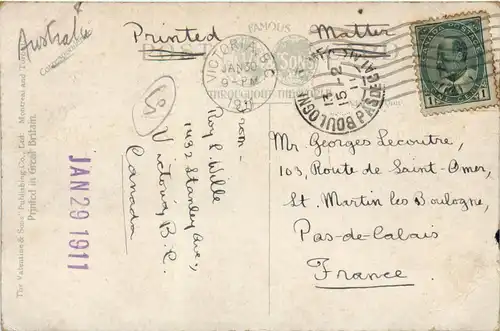 Australia
Printed Matter
FAMOUS
POST CARD
VICTORIA, B.C.
JAN 30
9-PM
1911
THROUGHOUT THE WORLD
CANADA POSTAGE
1 1
BOULOGNE
15-12
11
From -
Roy L. Wille
1432 Stanley Ave.,
Victoria, B.C.
Canada
JAN 29 1911
The Valentine & Sons' Publishing Co., Ltd. Montreal and
Printed in Great Britain.
Mr Georges Lecoutre,
103, Route de Saint-Omer,
St. Martin les Boulogne,
Pas-de-Calais
France